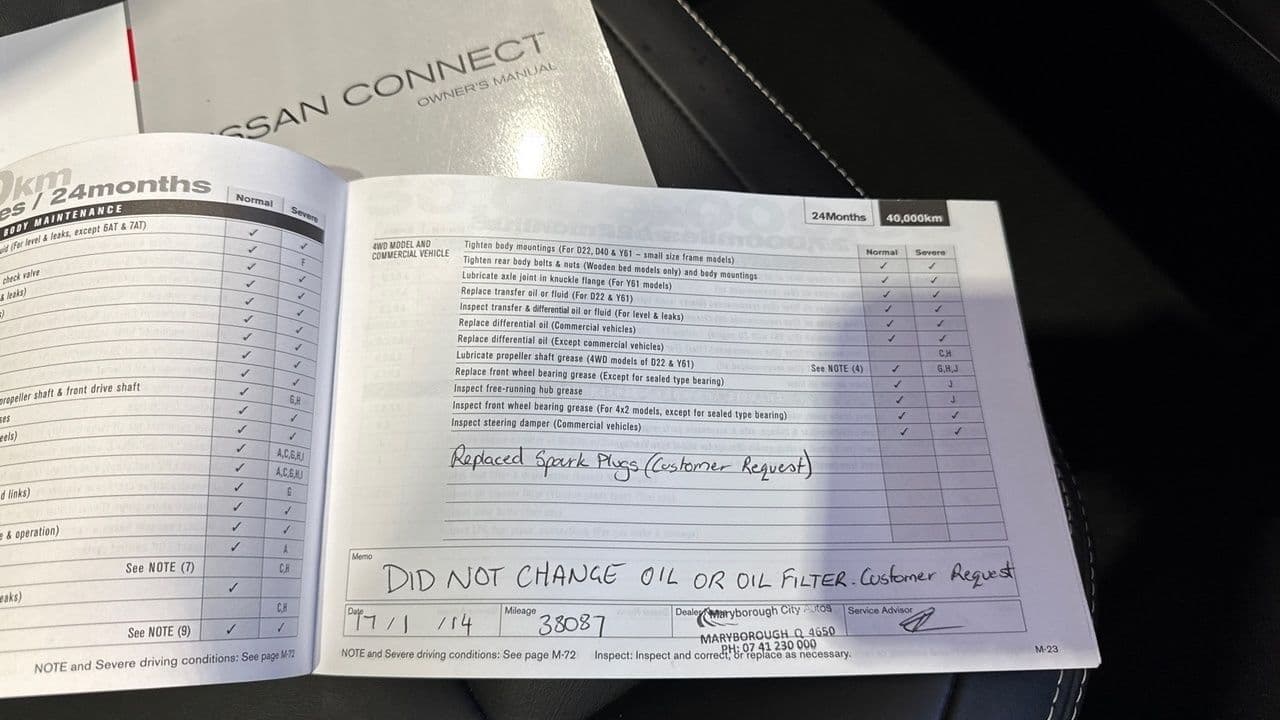 SSAN CONNECT
OWNER'S MANUAL
km
es / 24months
Normal Severe
BODY MAINTENANCE
(For level & leaks, except 6AT & 7AT)
✓ ✓
✓ F
check valve ✓ ✓
& leaks) ✓ ✓
✓ ✓
✓ ✓
✓ ✓
✓ ✓
✓ ✓
propeller shaft & front drive shaft ✓ G,H
✓ ✓
✓ ✓
✓ A,C,G,H,I
✓ A,C,G,H,I
d links) ✓ G
✓ ✓
& operation) ✓ ✓
✓ A
See NOTE (7) C,H
eaks) ✓
C,H
See NOTE (9) ✓ ✓
NOTE and Severe driving conditions: See page M-72
24Months 40,000km
Normal Severe
4WD MODEL AND
COMMERCIAL VEHICLE
Tighten body mountings (For D22, D40 & Y61 – small size frame models) ✓ ✓
Tighten rear body bolts & nuts (Wooden bed models only) and body mountings ✓ ✓
Lubricate axle joint in knuckle flange (For Y61 models) ✓ ✓
Replace transfer oil or fluid (For D22 & Y61) ✓ ✓
Inspect transfer & differential oil or fluid (For level & leaks) ✓ ✓
Replace differential oil (Commercial vehicles) ✓ ✓
Replace differential oil (Except commercial vehicles) C,H
Lubricate propeller shaft grease (4WD models of D22 & Y61) See NOTE (4) ✓ G,H,J
Replace front wheel bearing grease (Except for sealed type bearing) ✓ J
Inspect free-running hub grease ✓ J
Inspect front wheel bearing grease (For 4x2 models, except for sealed type bearing) ✓ ✓
Inspect steering damper (Commercial vehicles) ✓ ✓
Replaced Spark Plugs (Customer Request)
Memo
DID NOT CHANGE OIL OR OIL FILTER. Customer Request
Date 17/1/14 Mileage 38087 Dealer Maryborough City Autos Service Advisor
MARYBOROUGH Q 4650
PH: 07 41 230 000
NOTE and Severe driving conditions: See page M-72 Inspect: Inspect and correct, or replace as necessary.
M-23